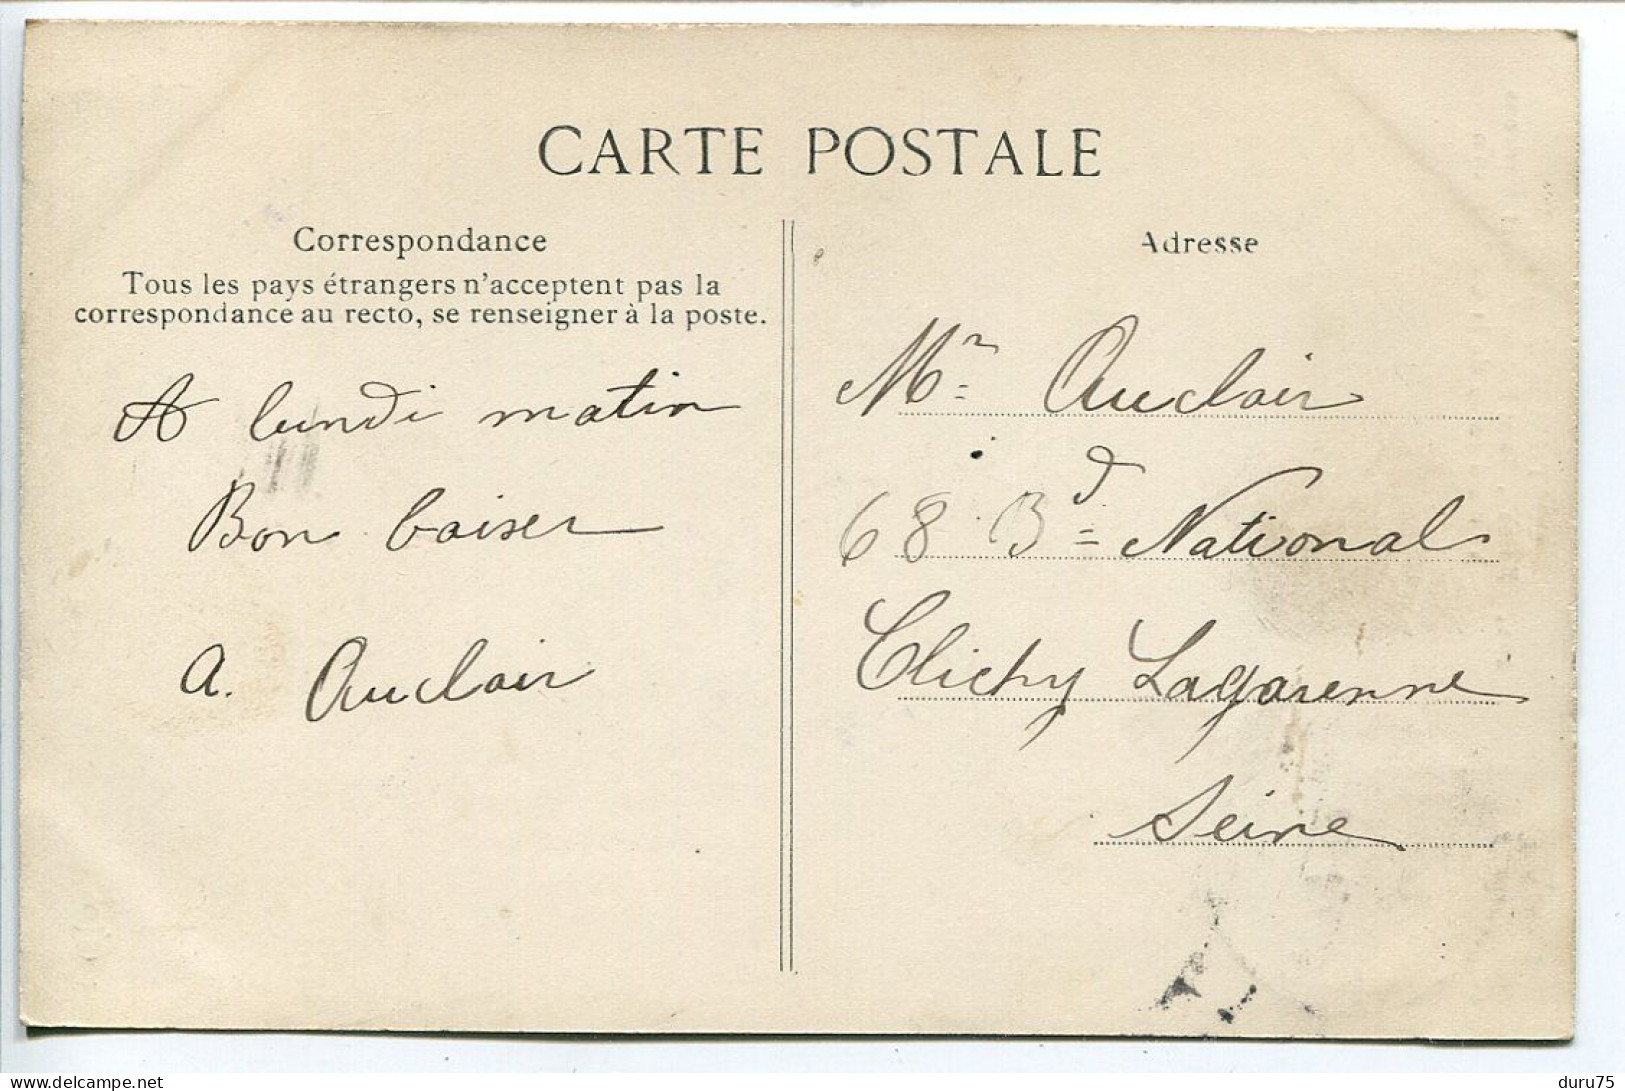 CARTE POSTALE
Correspondance
Tous les pays étrangers n'acceptent pas la
correspondance au recto, se renseigner à la poste.
A lundi matin
Bon baiser
A. Auclair
Adresse
Mr Auclair
68 Bd National
Clichy Lagarenne
Seine
delcampe.net
duru75